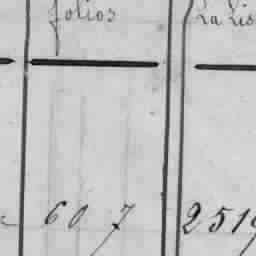 folios La Lis
60 7 2519